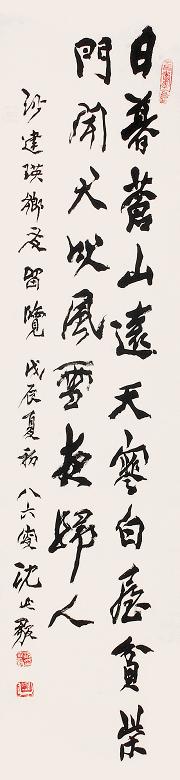 日暮蒼山遠天寒白屋貧柴
門聞犬吠風雪夜歸人
建瑛鄉友留覽 戊辰夏初 八六叟 沈延毅